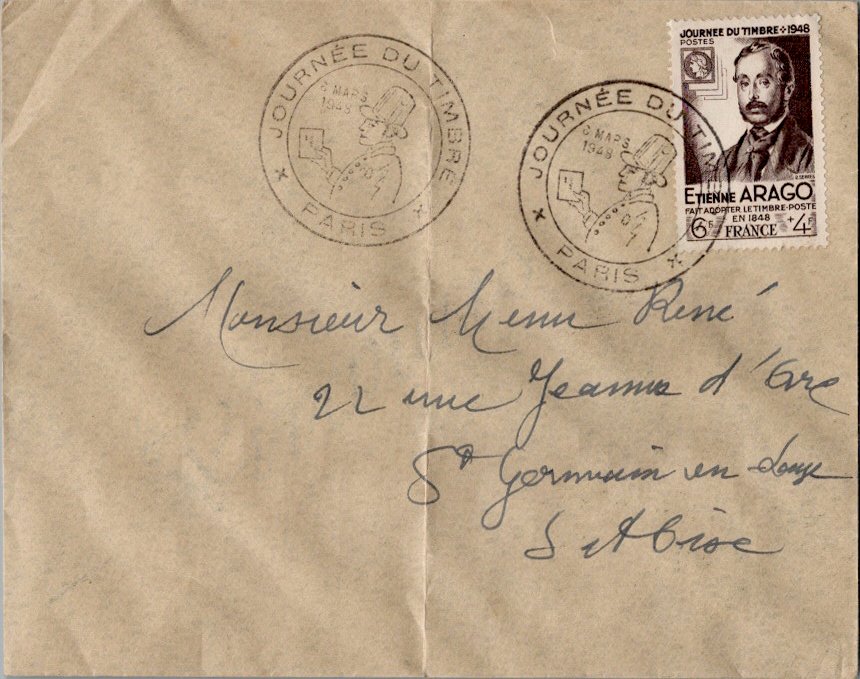 JOURNÉE DU TIMBRE
6 MARS
1948
PARIS
JOURNÉE DU TIM
6 MARS
1948
PARIS
JOURNEE DU TIMBRE 1948
POSTES
ETIENNE ARAGO
FAIT ADOPTER LE TIMBRE-POSTE
EN 1848
6F FRANCE +4F
Monsieur Menu René
22 rue Jeanne d'Arc
St Germain en Laye
S et Oise